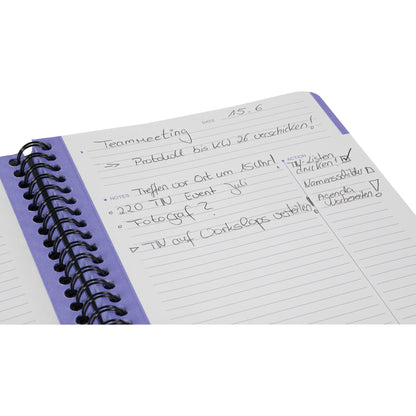 DATE 15.6
Teammeeting
-> Protokoll bis KW 26 verschicken!
NOTES
Treffen vor Ort um 15 Uhr!
220 TN Event Juli
- Fotograf?
▷ TN auf Workshops verteilen!
ACTION
TN-Listen
drucken! ☑
Namensschilder
Agenda
vorbereiten!